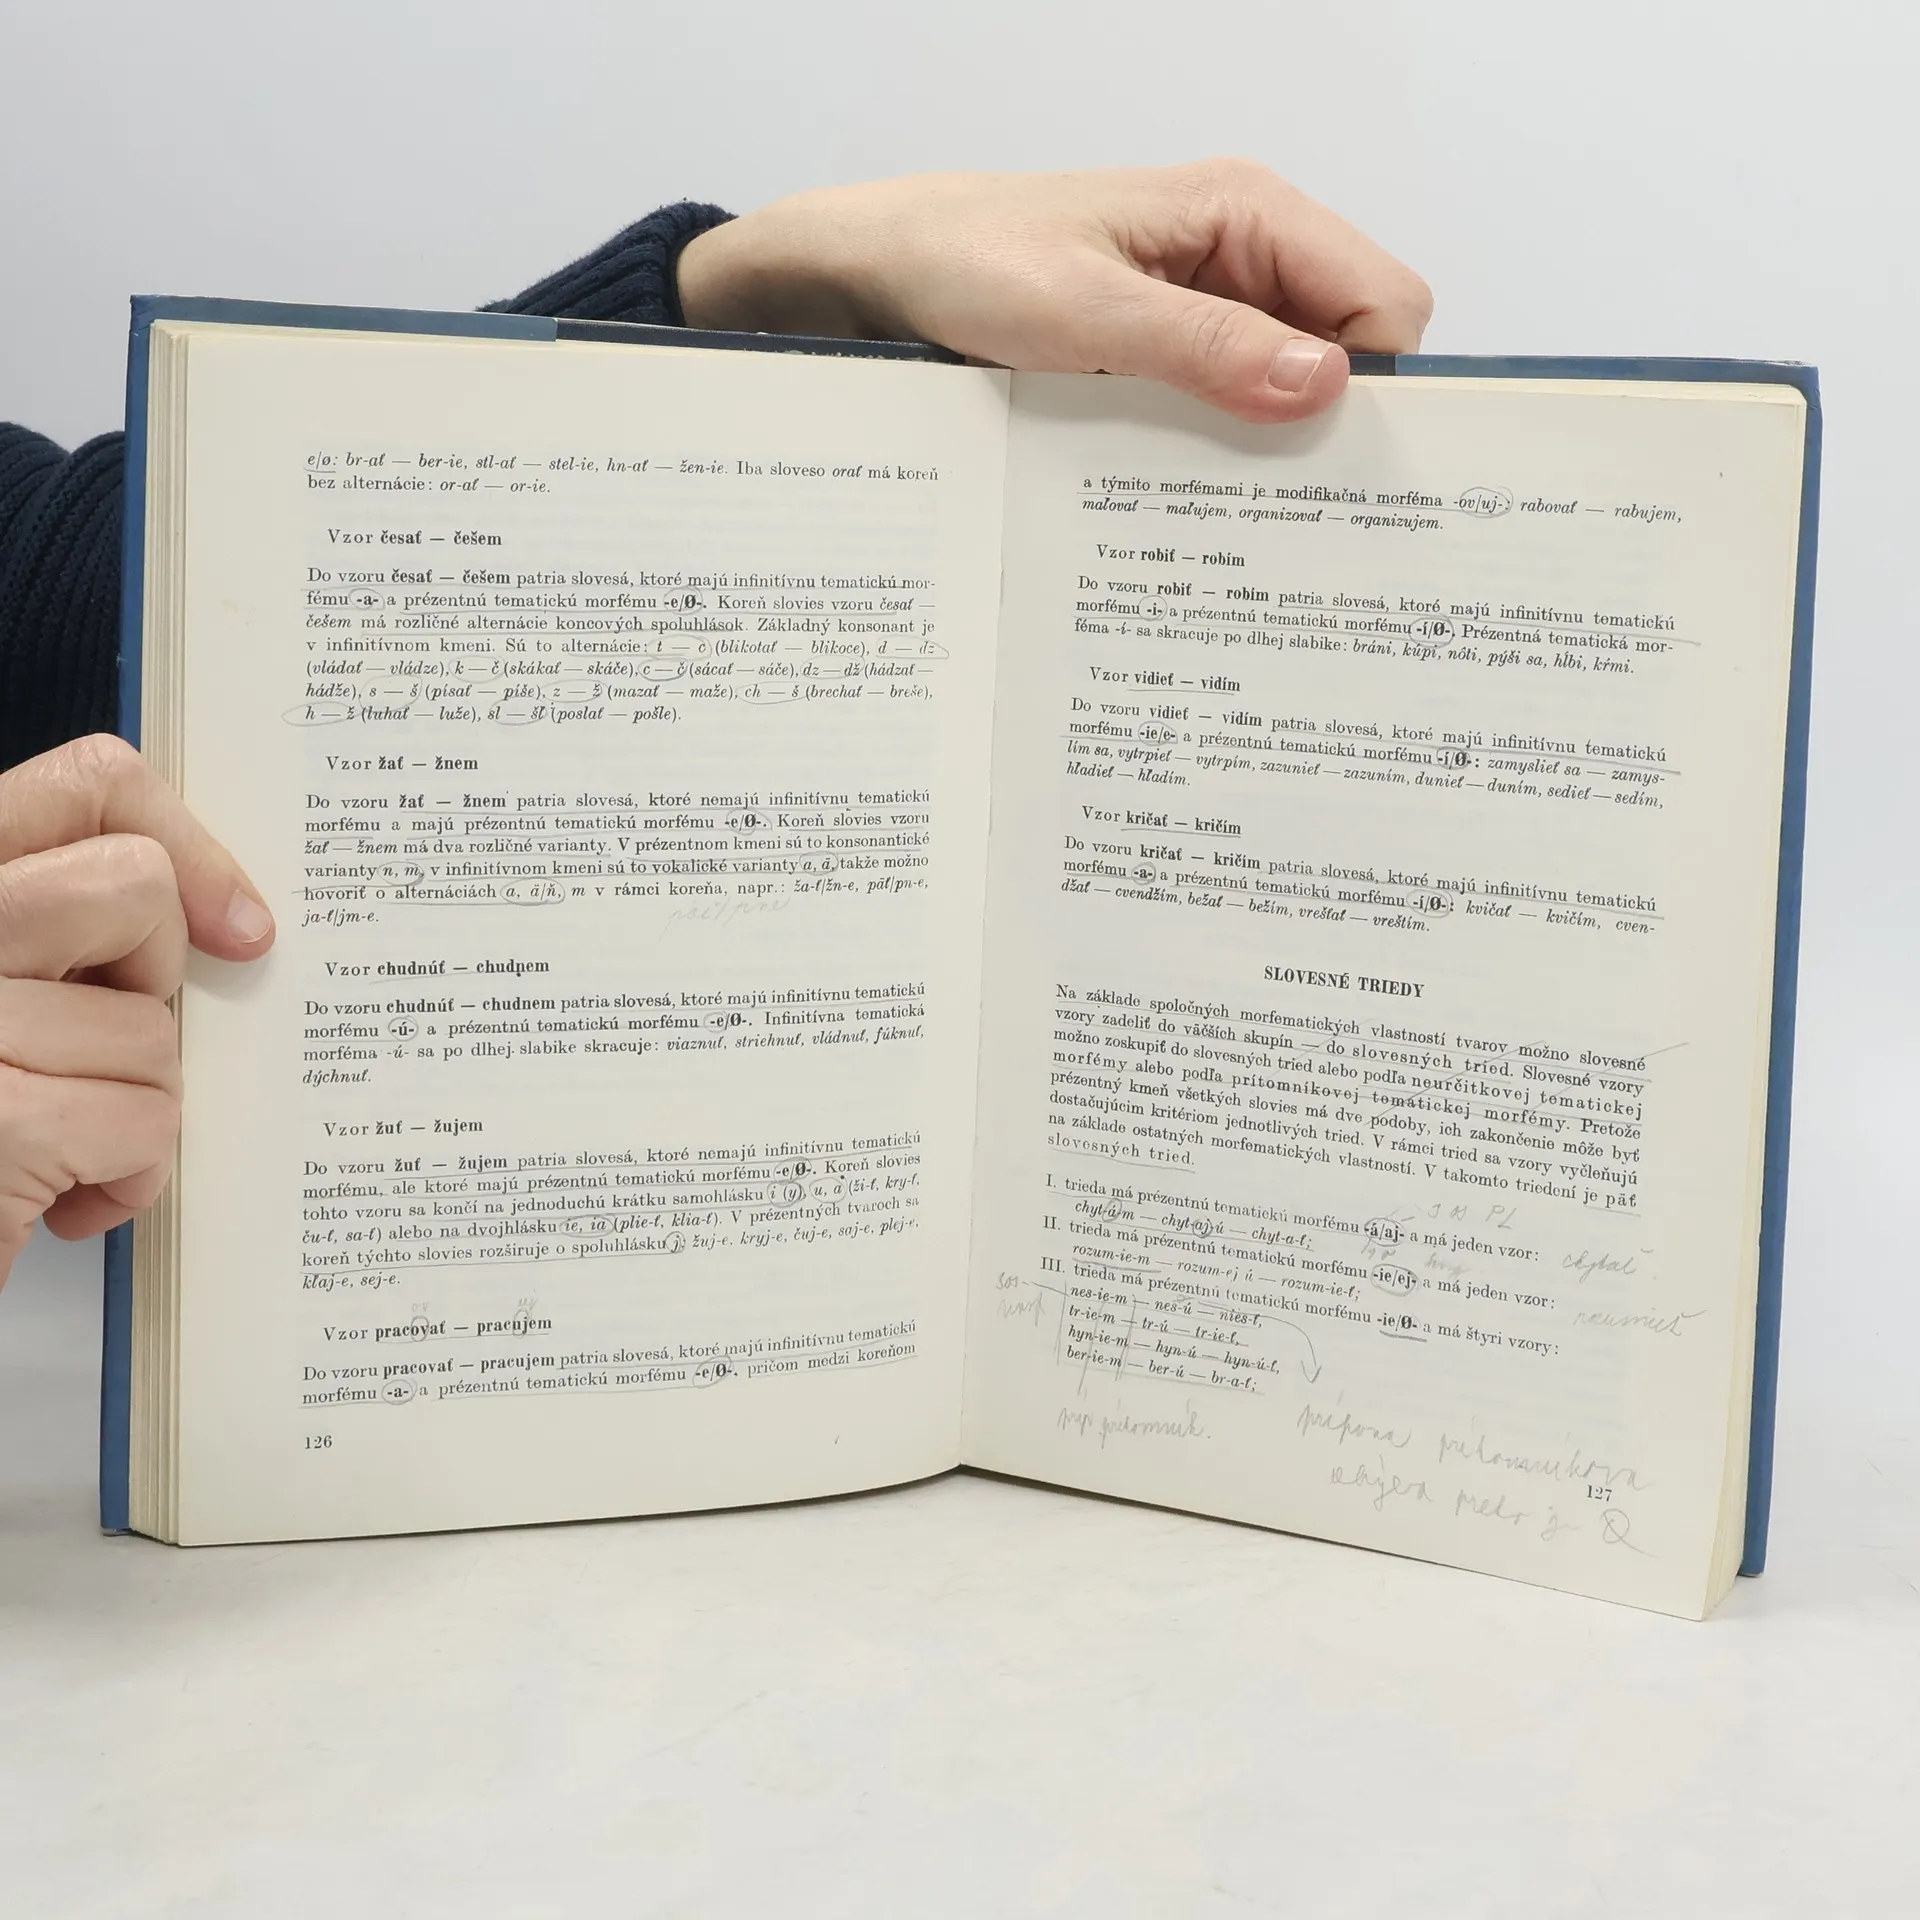 e/ø: br-ať — ber-ie, stl-ať — stel-ie, hn-ať — žen-ie. Iba sloveso orať má koreň
bez alternácie: or-ať — or-ie.
Vzor česať — češem
Do vzoru česať — češem patria slovesá, ktoré majú infinitívnu tematickú mor-
fému -a- a prézentnú tematickú morfému -e/Ø-. Koreň slovies vzoru česať —
češem má rozličné alternácie koncových spoluhlások. Základný konsonant je
v infinitívnom kmeni. Sú to alternácie: t — c (blikotať — blikoce), d — dz
(vládať — vládze), k — č (skákať — skáče), c — č (sácať — sáče), dz — dž (hádzať —
hádže), s — š (písať — píše), z — ž (mazať — maže), ch — š (brechať — breše),
h — ž (luhať — luže), sl — šľ (poslať — pošle).
Vzor žať — žnem
Do vzoru žať — žnem patria slovesá, ktoré nemajú infinitívnu tematickú
morfému a majú prézentnú tematickú morfému -e/Ø-. Koreň slovies vzoru
žať — žnem má dva rozličné varianty. V prézentnom kmeni sú to konsonantické
varianty n, m, v infinitívnom kmeni sú to vokalické varianty a, ä, takže možno
hovoriť o alternáciách a, ä/ň, m v rámci koreňa, napr.: ža-ť/žn-e, päť/pn-e,
ja-ť/jm-e.
Vzor chudnúť — chudnem
Do vzoru chudnúť — chudnem patria slovesá, ktoré majú infinitívnu tematickú
morfému -ú- a prézentnú tematickú morfému -e/Ø-. Infinitívna tematická
morféma -ú- sa po dlhej slabike skracuje: viaznuť, striehnuť, vládnuť, fúknuť,
dýchnuť.
Vzor žuť — žujem
Do vzoru žuť — žujem patria slovesá, ktoré nemajú infinitívnu tematickú
morfému, ale ktoré majú prézentnú tematickú morfému -e/Ø-. Koreň slovies
tohto vzoru sa končí na jednoduchú krátku samohlásku i (y), u, a (ži-ť, kry-ť,
ču-ť, sa-ť) alebo na dvojhlásku ie, ia (plie-ť, klia-ť). V prézentných tvaroch sa
koreň týchto slovies rozširuje o spoluhlásku j: žuj-e, kryj-e, čuj-e, saj-e, plej-e,
kľaj-e, sej-e.
ov uj
Vzor pracovať — pracujem
Do vzoru pracovať — pracujem patria slovesá, ktoré majú infinitívnu tematickú
morfému -a- a prézentnú tematickú morfému -e/Ø-, pričom medzi koreňom
126
a týmito morfémami je modifikačná morféma -ov/uj-: rabovať — rabujem,
maľovať — maľujem, organizovať — organizujem.
Vzor robiť — robím
Do vzoru robiť — robím patria slovesá, ktoré majú infinitívnu tematickú
morfému -i- a prézentnú tematickú morfému -í/Ø-. Prézentná tematická mor-
féma -í- sa skracuje po dlhej slabike: bráni, kúpi, nôti, pýši sa, hĺbi, kŕmi.
Vzor vidieť — vidím
Do vzoru vidieť — vidím patria slovesá, ktoré majú infinitívnu tematickú
morfému -ie/e- a prézentnú tematickú morfému -í/Ø-: zamyslieť sa — zamys-
lím sa, vytrpieť — vytrpím, zazunieť — zazuním, dunieť — duním, sedieť — sedím,
hľadieť — hľadím.
Vzor kričať — kričím
Do vzoru kričať — kričím patria slovesá, ktoré majú infinitívnu tematickú
morfému -a- a prézentnú tematickú morfému -í/Ø-: kvičať — kvičím, cven-
džať — cvendžím, bežať — bežím, vrešťať — vreštím.
SLOVESNÉ TRIEDY
Na základe spoločných morfematických vlastností tvarov možno slovesné
vzory zadeliť do väčších skupín — do slovesných tried. Slovesné vzory
možno zoskupiť do slovesných tried alebo podľa neurčitkovej tematickej
morfémy alebo podľa prítomníkovej tematickej morfémy. Pretože
prézentný kmeň všetkých slovies má dve podoby, ich zakončenie môže byť
dostačujúcim kritériom jednotlivých tried. V rámci tried sa vzory vyčleňujú
na základe ostatných morfematických vlastností. V takomto triedení je päť
slovesných tried.
I. trieda má prézentnú tematickú morfému -á/aj- a má jeden vzor: chytať
3 os PL
chyt-á-m — chyt-aj-ú — chyt-a-ť;
II. trieda má prézentnú tematickú morfému -ie/ej- a má jeden vzor:
rozumieť
rozum-ie-m — rozum-ej-ú — rozum-ie-ť;
III. trieda má prézentnú tematickú morfému -ie/Ø- a má štyri vzory:
nes-ie-m — nes-ú — nies-ť,
tr-ie-m — tr-ú — trie-ť,
hyn-ie-m — hyn-ú — hyn-ú-ť,
ber-ie-m — ber-ú — br-a-ť;
príp. prítomník.
prípona prítomníková
preto je Ø
127